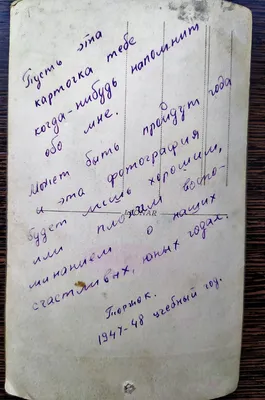 Пусть эта
карточка тебе
когда-нибудь напомнит
обо мне.
Может быть пройдут года
и эта фотография
будет лишь хорошим,
или плохим воспо-
минанием о наших
счастливых, юных годах.
Торжок.
1947-48 учебный год.